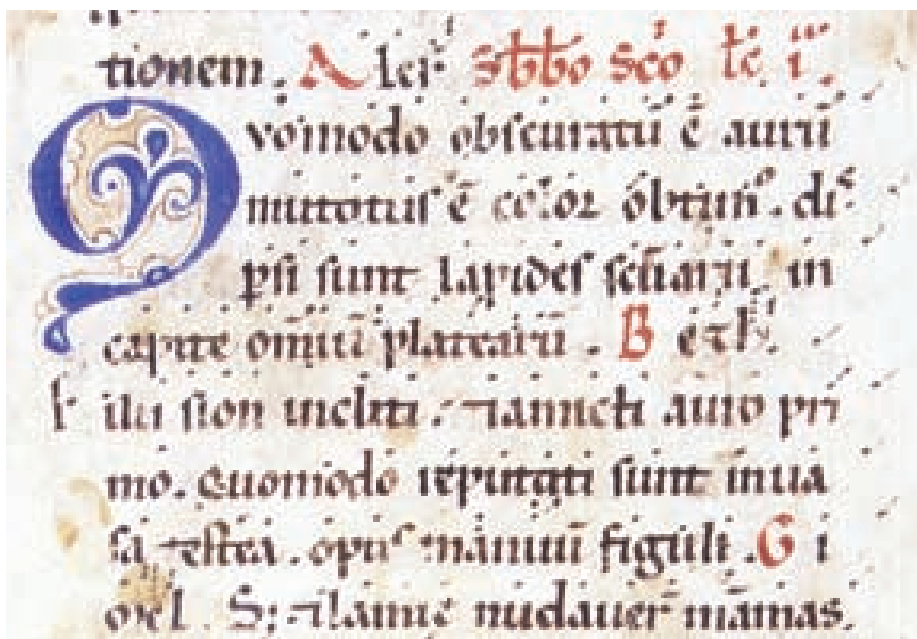 tionem. Alef sbbo sco lc i
Quomodo obscuratũ ẽ aurũ
mutatus ẽ color obtim᷒. di
psi sunt lapides scuarũ in
capite omiũ platearũ. B eth.
filii sion incliti. ⁊ amicti auro pri
mo. quomodo reputati sunt in ua
sa testea. opus manuũ figuli. G i
mel. S; ⁊ lamie nudauer̃ mamas.